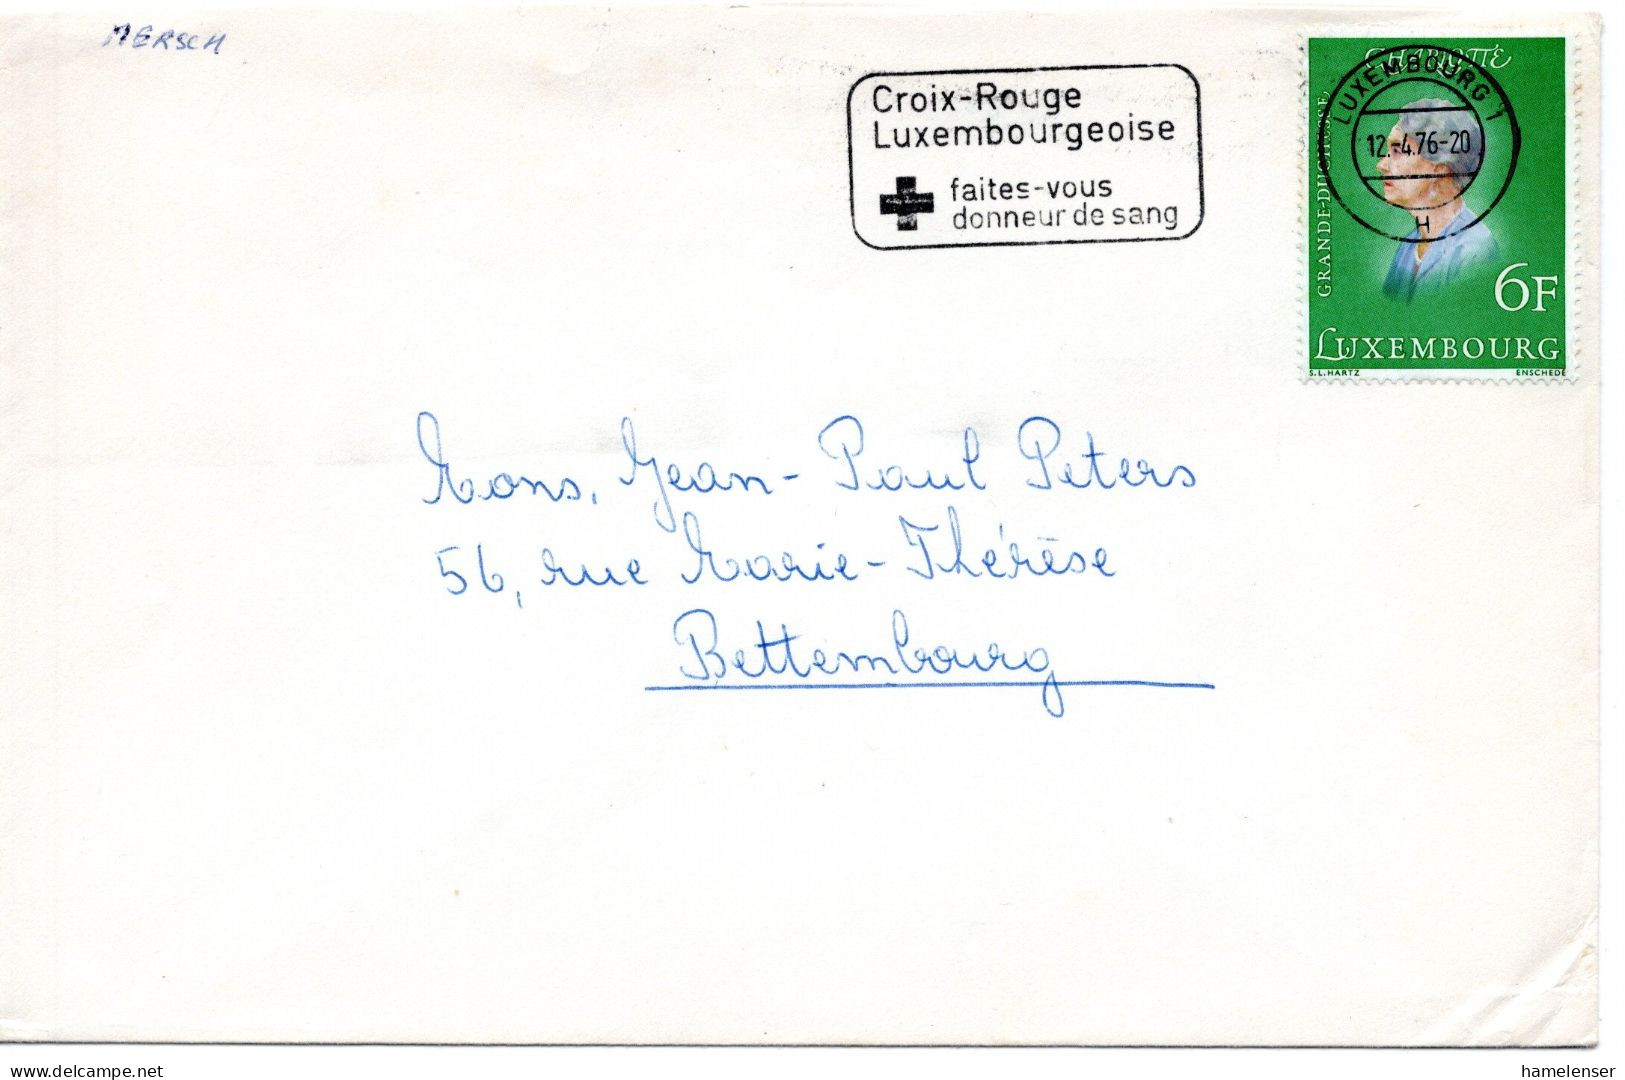 MERSCH
Croix-Rouge
Luxembourgeoise
faites-vous
donneur de sang
CHARLOTTE
GRANDE-DUCHESSE
LUXEMBOURG 1
12.-4.76-20
H
6F
LUXEMBOURG
S.L.HARTZ ENSCHEDE
Mons. Jean-Paul Peters
56, rue Marie-Thérèse
Bettembourg
delcampe.net
hamelenser